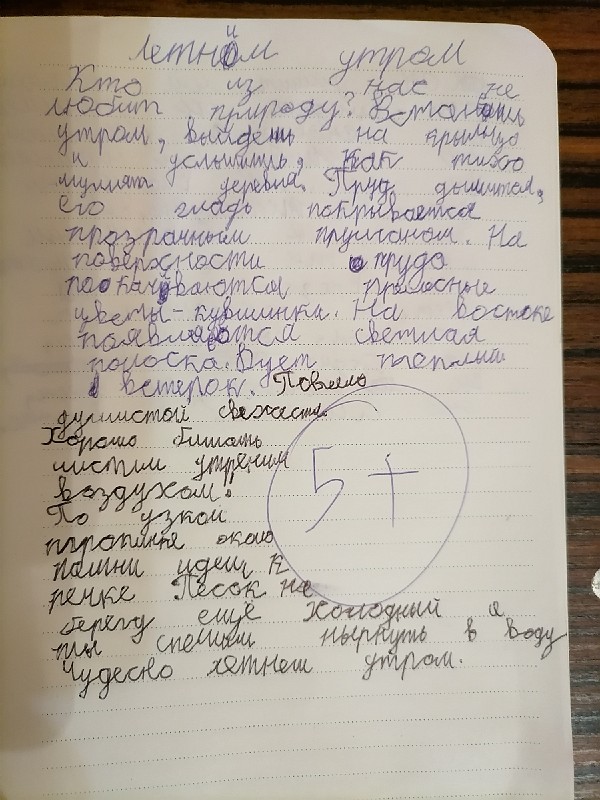 Летним утром
Кто из нас не
любит природу? Встанешь
утром, выйдешь на крыльцо
и услышишь, как тихо
деревня. Пруд дышится,
его гладь покрывается
прозрачным туманом. На
поверхности пруда
покачиваются
цветы-кувшинки. На востоке
появляется светлая
полоска. Дует теплый
ветерок. Повеяло
душистой свежасти.
Хорошо дишать
чистим утреним
воздухом!
По узкой
тропинке около
пашни идеш к
речке Песок на
берегу ещё холодный а
ты спешиш нырнуть в воду
Чудесно летнем утром.
5+